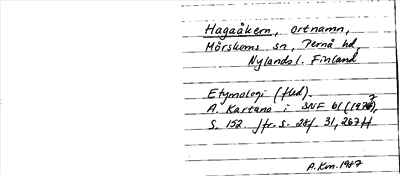 Hagaåkern, ortnamn,
Mörskoms sn, Pernå hd,
Nylands l. Finland
Etymologi (fled).
A. Kartano i SNF 61 (1971),
s. 152. Jfr. s. 28f. 31, 267 ff
A.Km. 1987